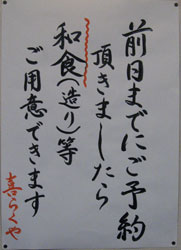 前日までにご予約
頂きましたら
和食(造り)等
ご用意できます
喜らくや